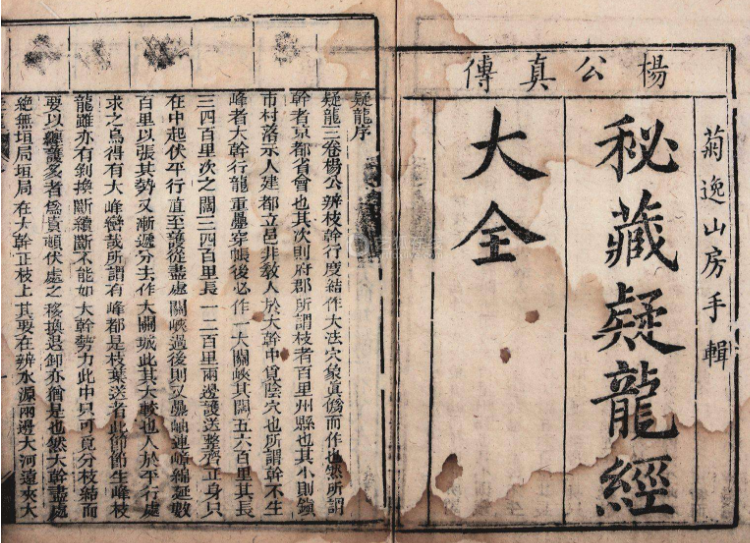 楊公真傳
菊逸山房手輯
秘藏疑龍經
大全
疑龍序
疑龍三卷楊公辨枝幹行度結作大法穴象真僞而作也然所謂
幹者京都省會也其次則府郡所謂枝者百里州縣也其小則鎮
市村落示人建都立邑非教人於大幹中覓陰穴也所謂幹不生
峰者大幹行龍重疊穿帳後必作一大關峽其闊五六百里其長
三四百里次之闊三四百里長一二百里兩邊護送整齊正身只
在中起伏平行直至護從盡處關峽過後則又疊岫連峰綿延數
百里以張其勢又漸遞分去作大關城此其大較也人於平行處
求之烏得有大峰巒哉所謂有峰都是枝葉送者此節節生峰枝
龍雖亦有剝換斷續斷不能如大幹勢力此中只可覓分枝結而
要以纏護多者爲貴頓伏處之移換退卸亦猶是也然大幹盡處
絕無垣局垣局在大幹正枝上其要在辨水源兩邊大河遠夾大